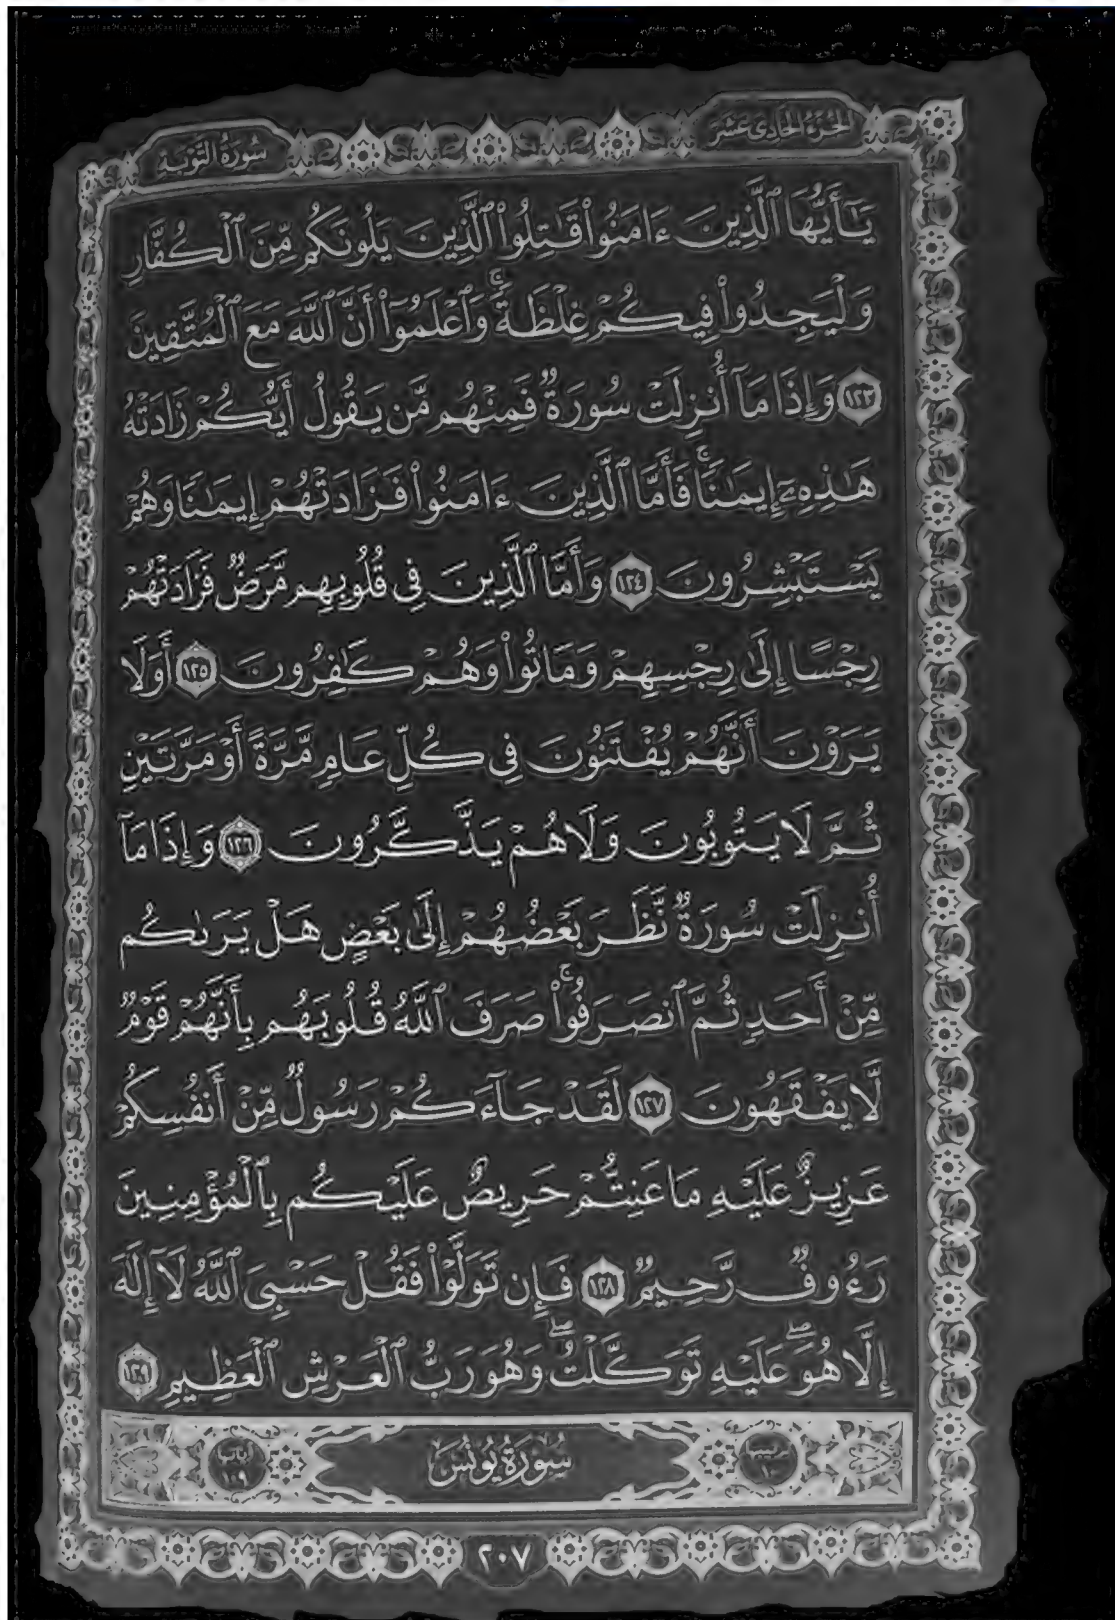 الجزء الحادي عشر
سورة التوبة
يَـٰٓأَيُّهَا ٱلَّذِينَ ءَامَنُوا۟ قَـٰتِلُوا۟ ٱلَّذِينَ يَلُونَكُم مِّنَ ٱلْكُفَّارِ
وَلْيَجِدُوا۟ فِيكُمْ غِلْظَةً ۚ وَٱعْلَمُوٓا۟ أَنَّ ٱللَّهَ مَعَ ٱلْمُتَّقِينَ
١٢٣ وَإِذَا مَآ أُنزِلَتْ سُورَةٌ فَمِنْهُم مَّن يَقُولُ أَيُّكُمْ زَادَتْهُ
هَـٰذِهِۦٓ إِيمَـٰنًا ۚ فَأَمَّا ٱلَّذِينَ ءَامَنُوا۟ فَزَادَتْهُمْ إِيمَـٰنًا وَهُمْ
يَسْتَبْشِرُونَ ١٢٤ وَأَمَّا ٱلَّذِينَ فِى قُلُوبِهِم مَّرَضٌ فَزَادَتْهُمْ
رِجْسًا إِلَىٰ رِجْسِهِمْ وَمَاتُوا۟ وَهُمْ كَـٰفِرُونَ ١٢٥ أَوَلَا
يَرَوْنَ أَنَّهُمْ يُفْتَنُونَ فِى كُلِّ عَامٍ مَّرَّةً أَوْ مَرَّتَيْنِ
ثُمَّ لَا يَتُوبُونَ وَلَا هُمْ يَذَّكَّرُونَ ١٢٦ وَإِذَا مَآ
أُنزِلَتْ سُورَةٌ نَّظَرَ بَعْضُهُمْ إِلَىٰ بَعْضٍ هَلْ يَرَىٰكُم
مِّنْ أَحَدٍ ثُمَّ ٱنصَرَفُوا۟ ۚ صَرَفَ ٱللَّهُ قُلُوبَهُم بِأَنَّهُمْ قَوْمٌ
لَّا يَفْقَهُونَ ١٢٧ لَقَدْ جَآءَكُمْ رَسُولٌ مِّنْ أَنفُسِكُمْ
عَزِيزٌ عَلَيْهِ مَا عَنِتُّمْ حَرِيصٌ عَلَيْكُم بِٱلْمُؤْمِنِينَ
رَءُوفٌ رَّحِيمٌ ١٢٨ فَإِن تَوَلَّوْا۟ فَقُلْ حَسْبِىَ ٱللَّهُ لَآ إِلَـٰهَ
إِلَّا هُوَ ۖ عَلَيْهِ تَوَكَّلْتُ ۖ وَهُوَ رَبُّ ٱلْعَرْشِ ٱلْعَظِيمِ ١٢٩
ترتيبها ١٠ سُورَةُ يُونُسَ آياتها ١٠٩
٢٠٧